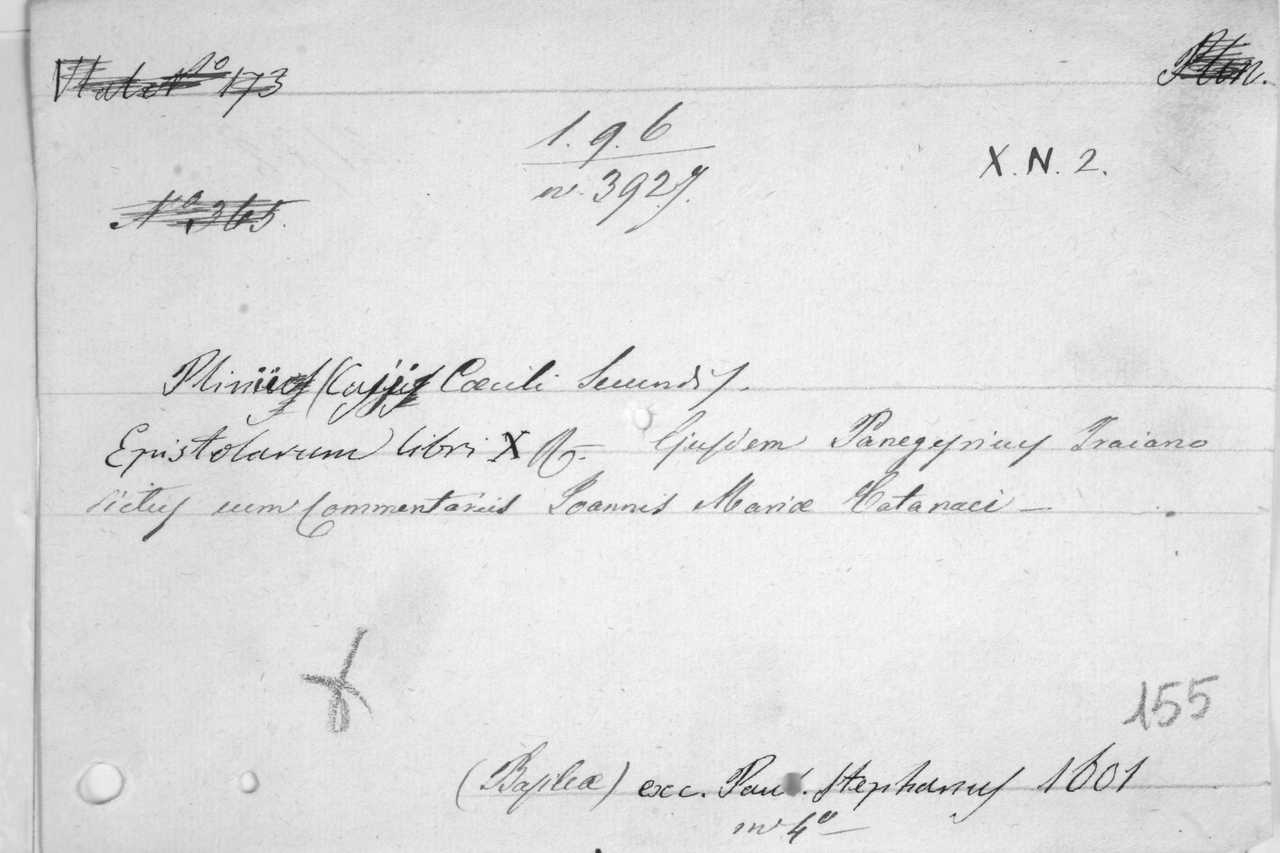 No 173
Plin.
1. 9. 6
X. N. 2.
n. 3927.
No 365.
Plinii Caecili Secundi.
Epistolarum libri X Ejusdem Panegyricus Traiano
dictus cum Commentariis Joannis Mariæ Catanaei —
155
(Basileæ) exc. Paul. Stephanus 1601
in 4o —